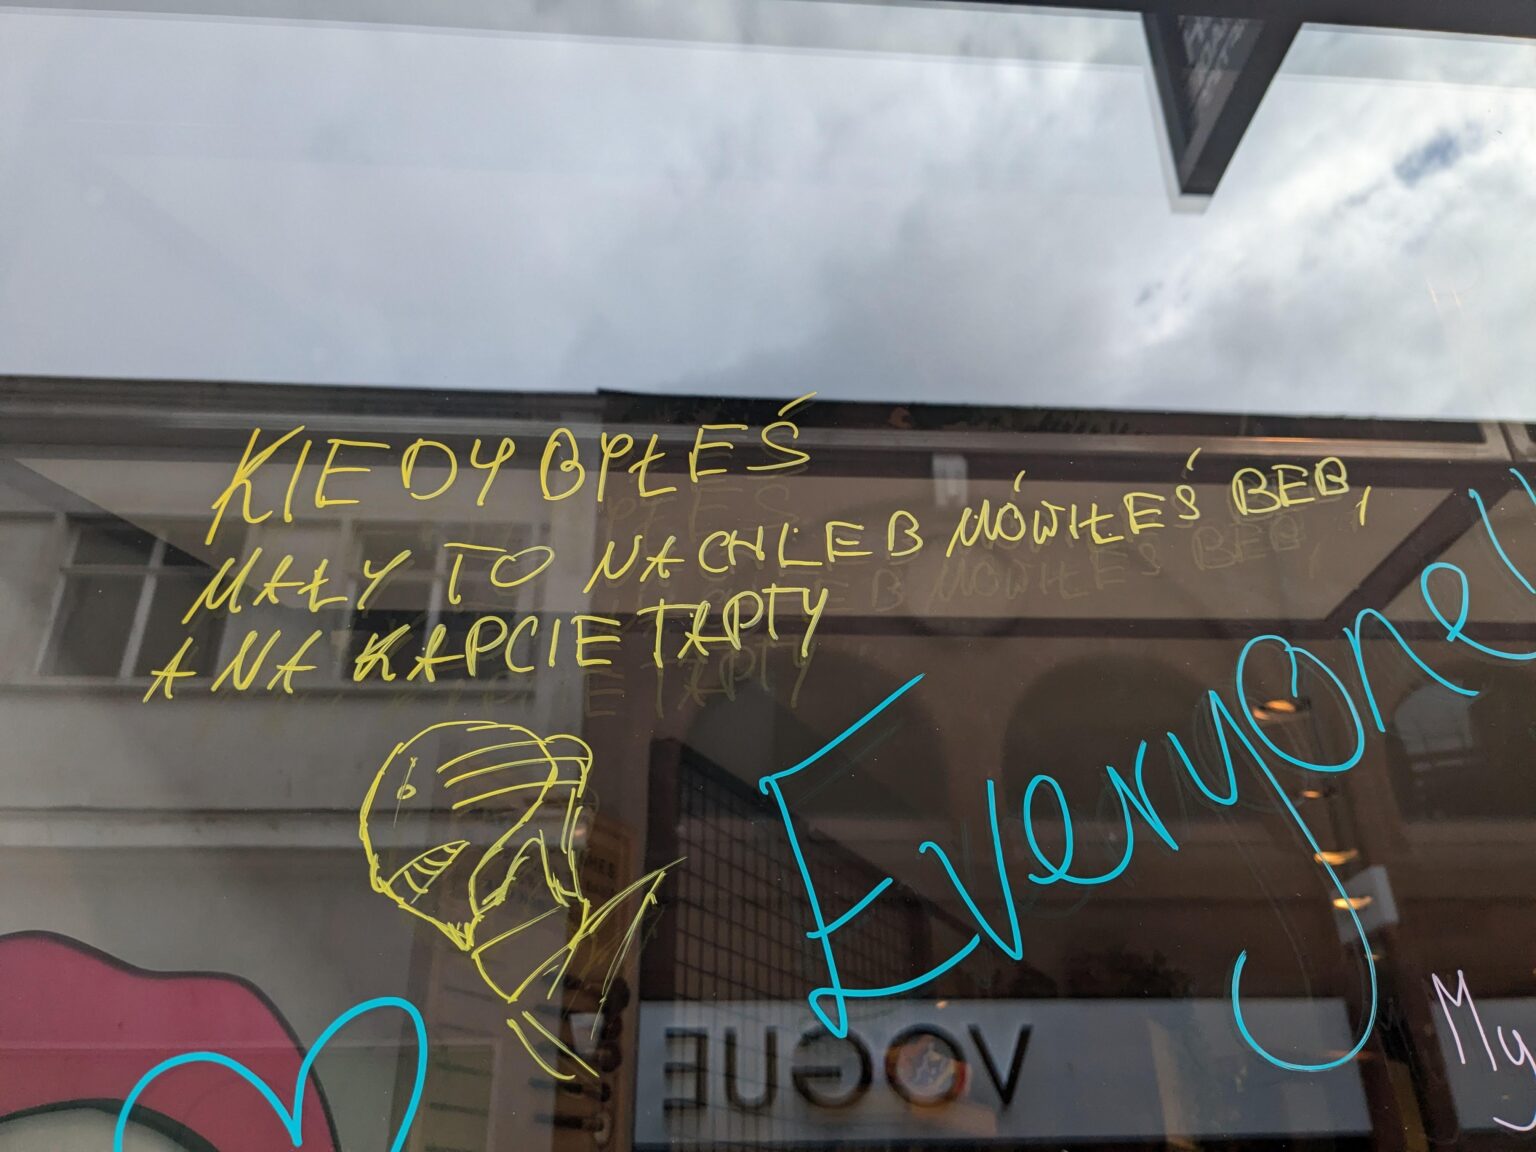 KIEDY BYŁEŚ
MAŁY TO NA CHLEB MÓWIŁEŚ BEB,
A NA KAPCIE TAPTY
Everyone
My
VOGUE